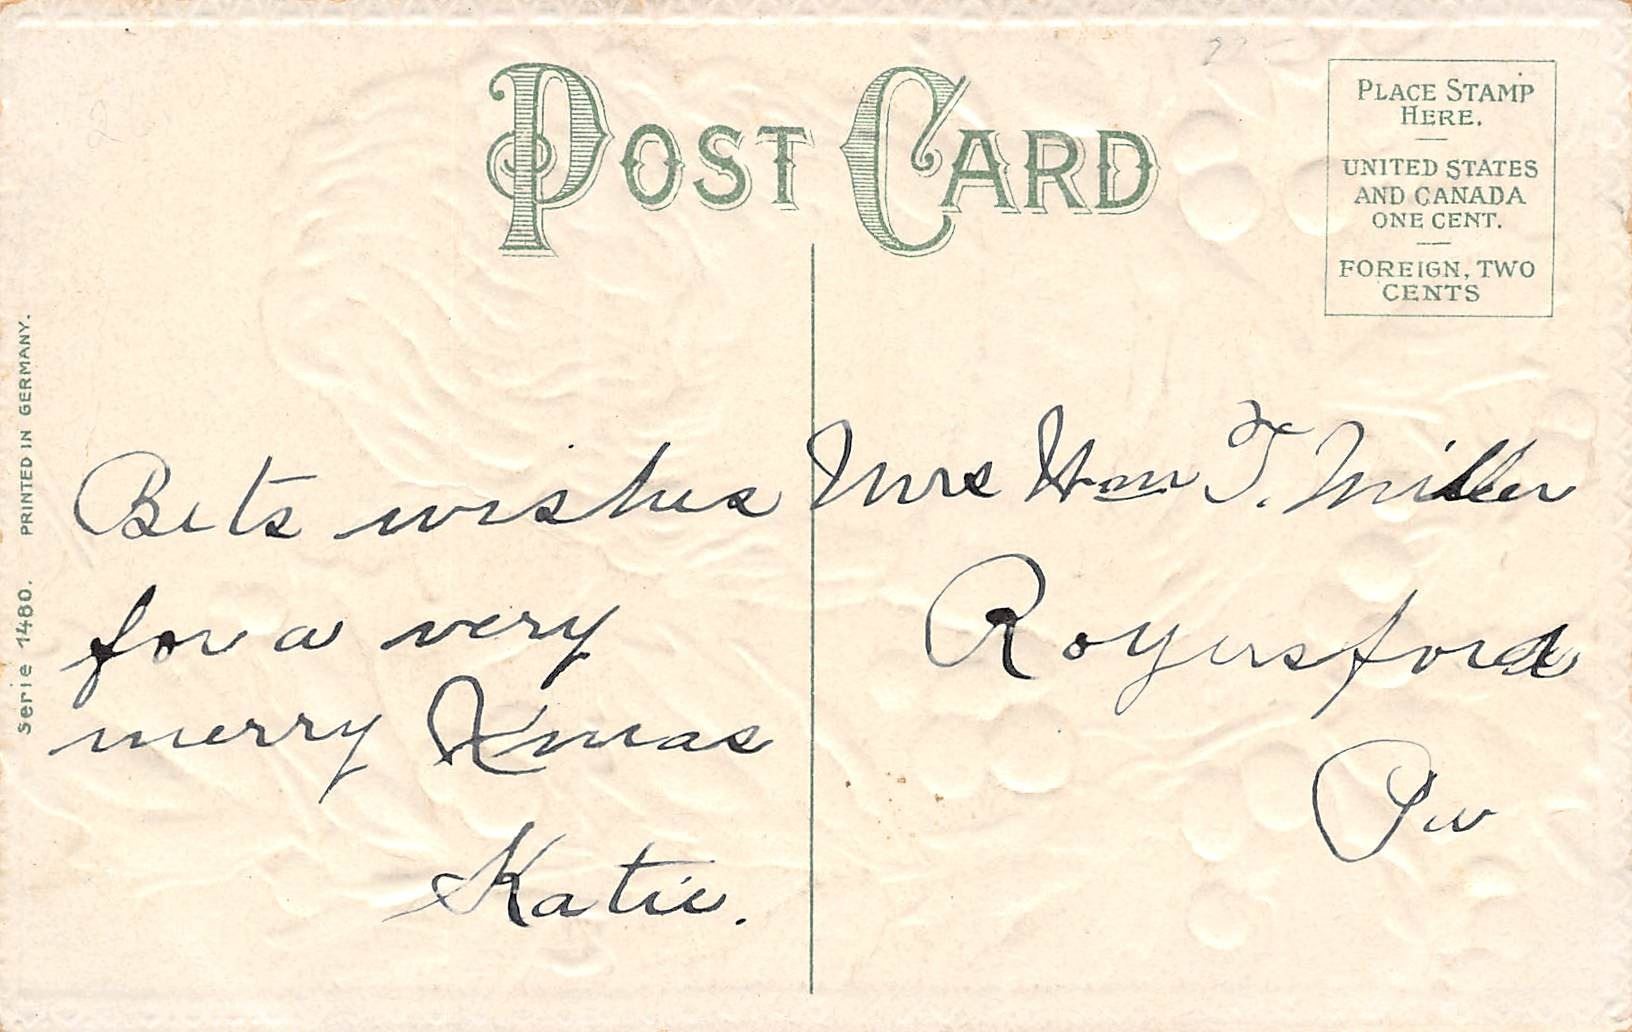 POST CARD
PLACE STAMP
HERE.
UNITED STATES
AND CANADA
ONE CENT.
FOREIGN, TWO
CENTS
Serie 1480. PRINTED IN GERMANY.
Bets wishes
for a very
merry Xmas
Katie.
Mrs Wm T. Miller
Royersford
Pa